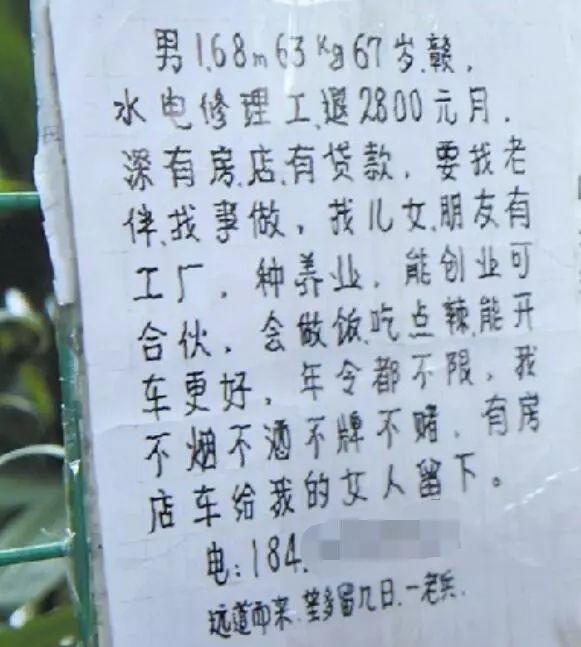 男1.68m63Kg67岁.赣.
水电修理工.退2800元月.
深有房.店.有贷款,要找老
伴.找事做,找儿女.朋友有
工厂,种养业,能创业可
合伙,会做饭.吃点辣.能开
车更好,年令都不限,我
不烟不酒不牌不赌,有房
店车给我的女人留下。
电:184.
远道而来.望多留几日.一老兵.